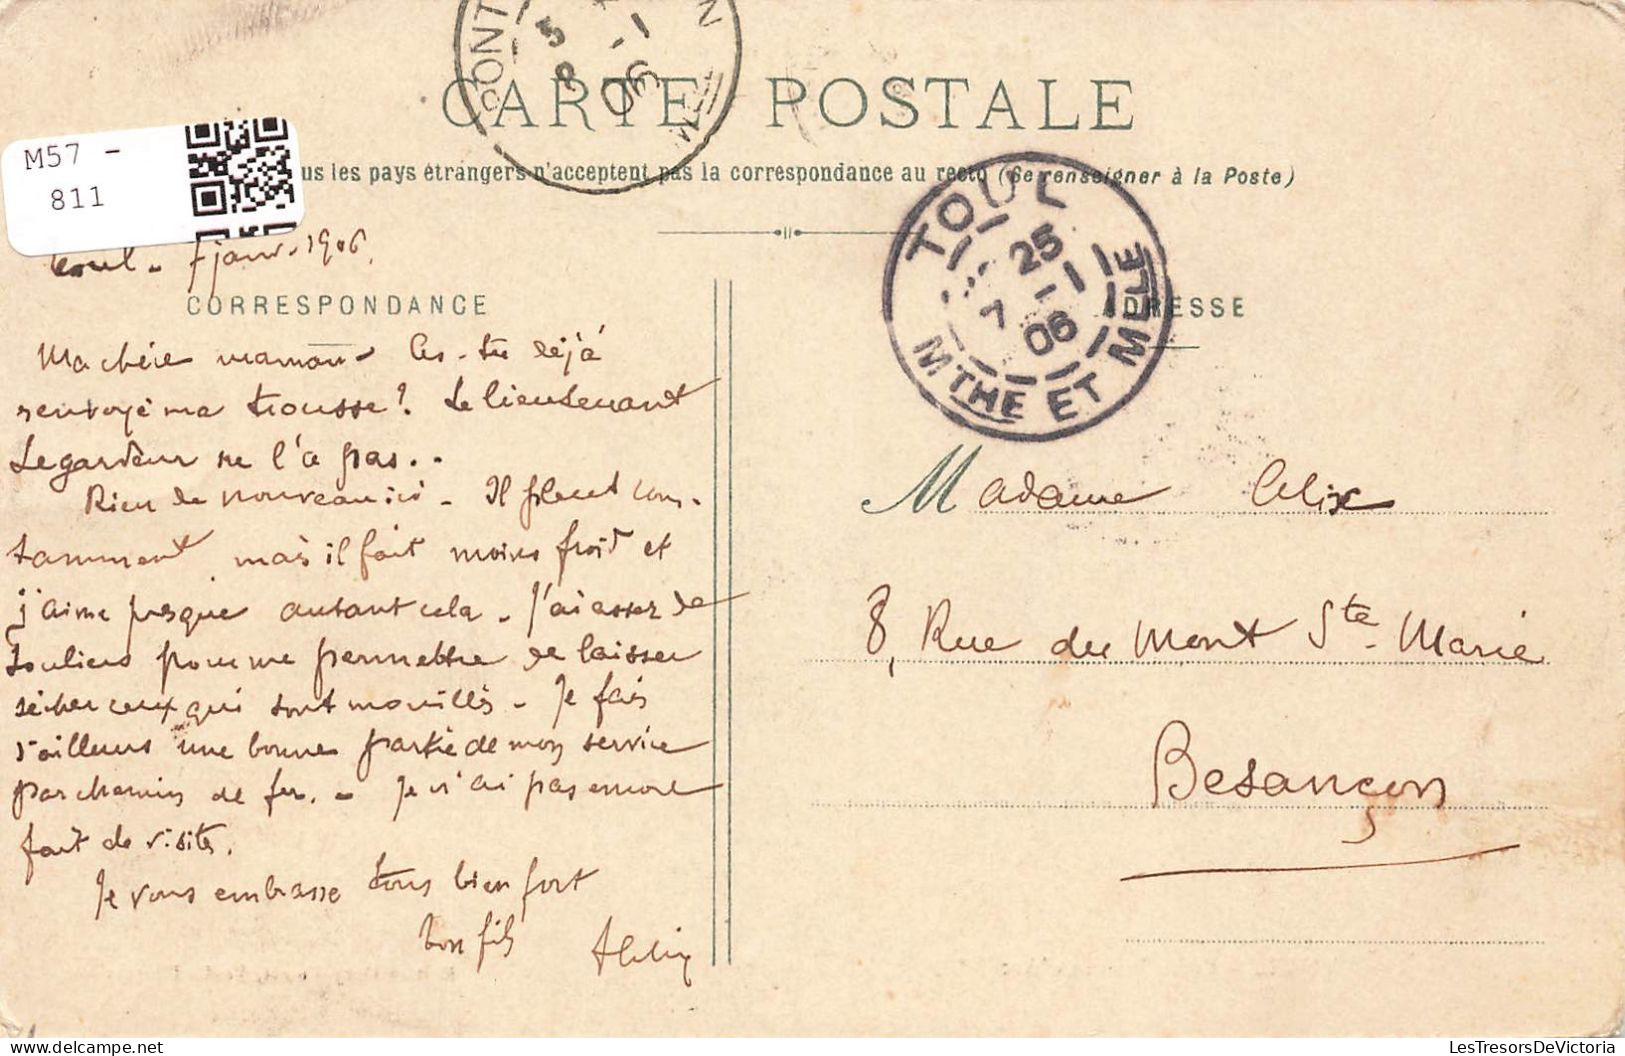 CARTE POSTALE
M57 -
811
us les pays étrangers n'acceptent pas la correspondance au recto (Se renseigner à la Poste)
TOUL
25
7 - 1
06
MTHE ET MELLE
PONT
5
8 - 1
06
Toul - 7 janv. 1906.
CORRESPONDANCE
ADRESSE
Ma chère maman - As-tu déjà
renvoyé ma trousse? Le lieutenant
Legardeur ne l'a pas..
Rien de nouveau ici - Il pleut cons-
tamment mais il fait moins froid et
j'aime presque autant cela - J'ai assez de
souliers pour me permettre de laisser
sécher ceux qui sont mouillés - Je fais
d'ailleurs une bonne partie de mon service
par chemin de fer. - Je n'ai pas encore
fait de visites.
Je vous embrasse tous bien fort
ton fils
Madame Alix
8, Rue du Mont Ste Marie
Besançon
LesTresorsDeVictoria.com